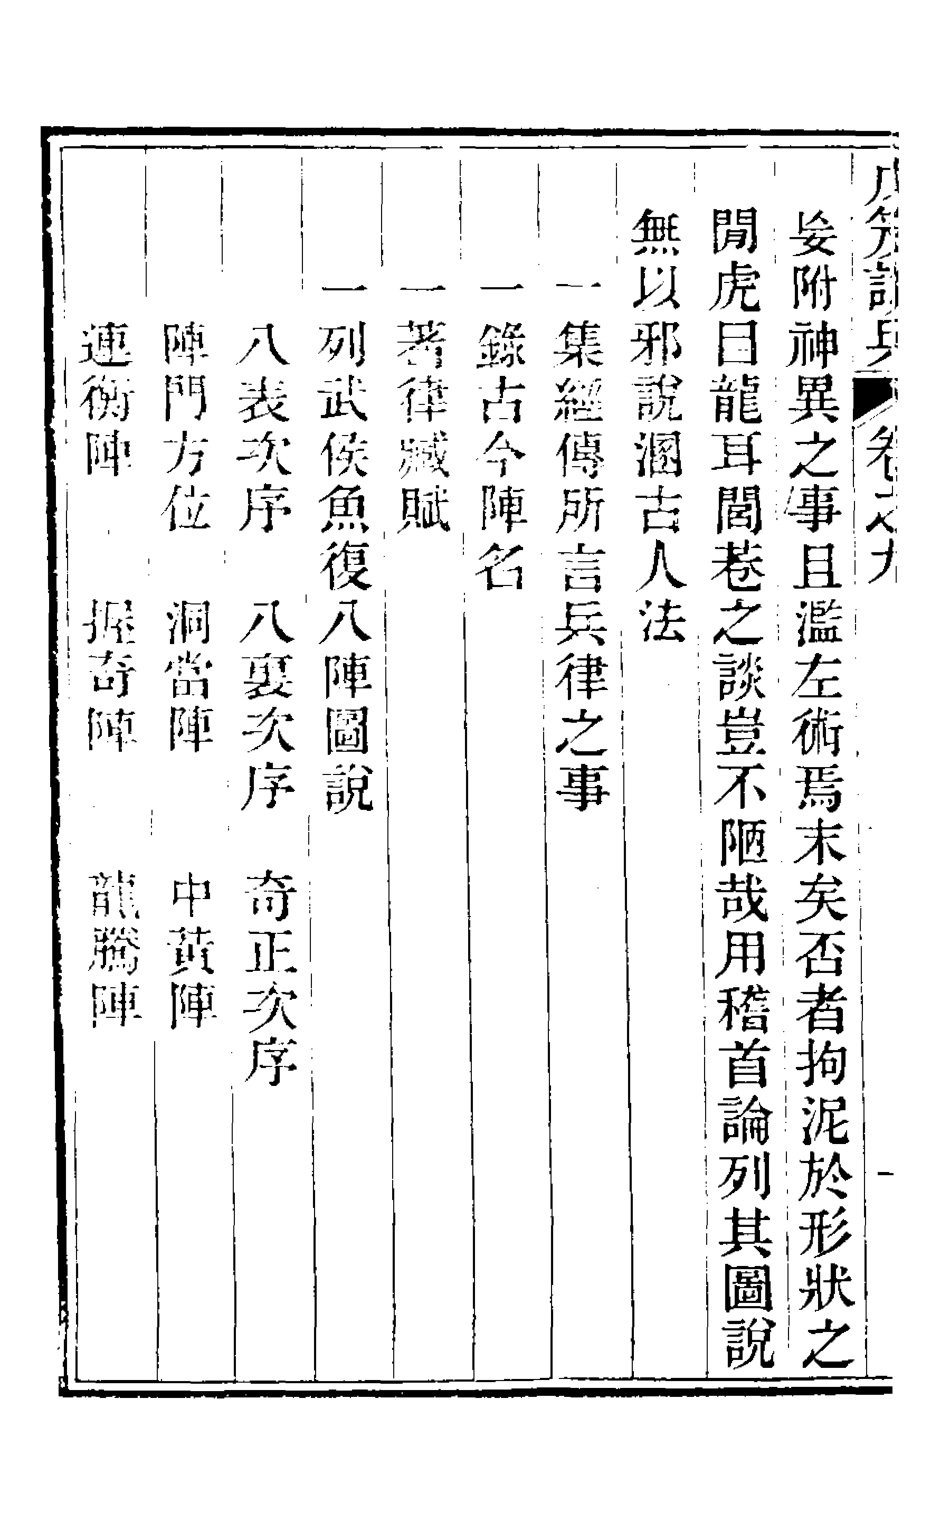 戊笈談兵 卷之九 一
妄附神異之事且濫左術焉末矣否者拘泥於形狀之
閒虎目龍耳閭巷之談豈不陋哉用稽首論列其圖說
無以邪說溷古人法
一集經傳所言兵律之事
一錄古今陣名
一著律臧賦
一列武侯魚復八陣圖說
八表次序 八裏次序 奇正次序
陣門方位 洞當陣 中黃陣
連衡陣 握奇陣 龍騰陣